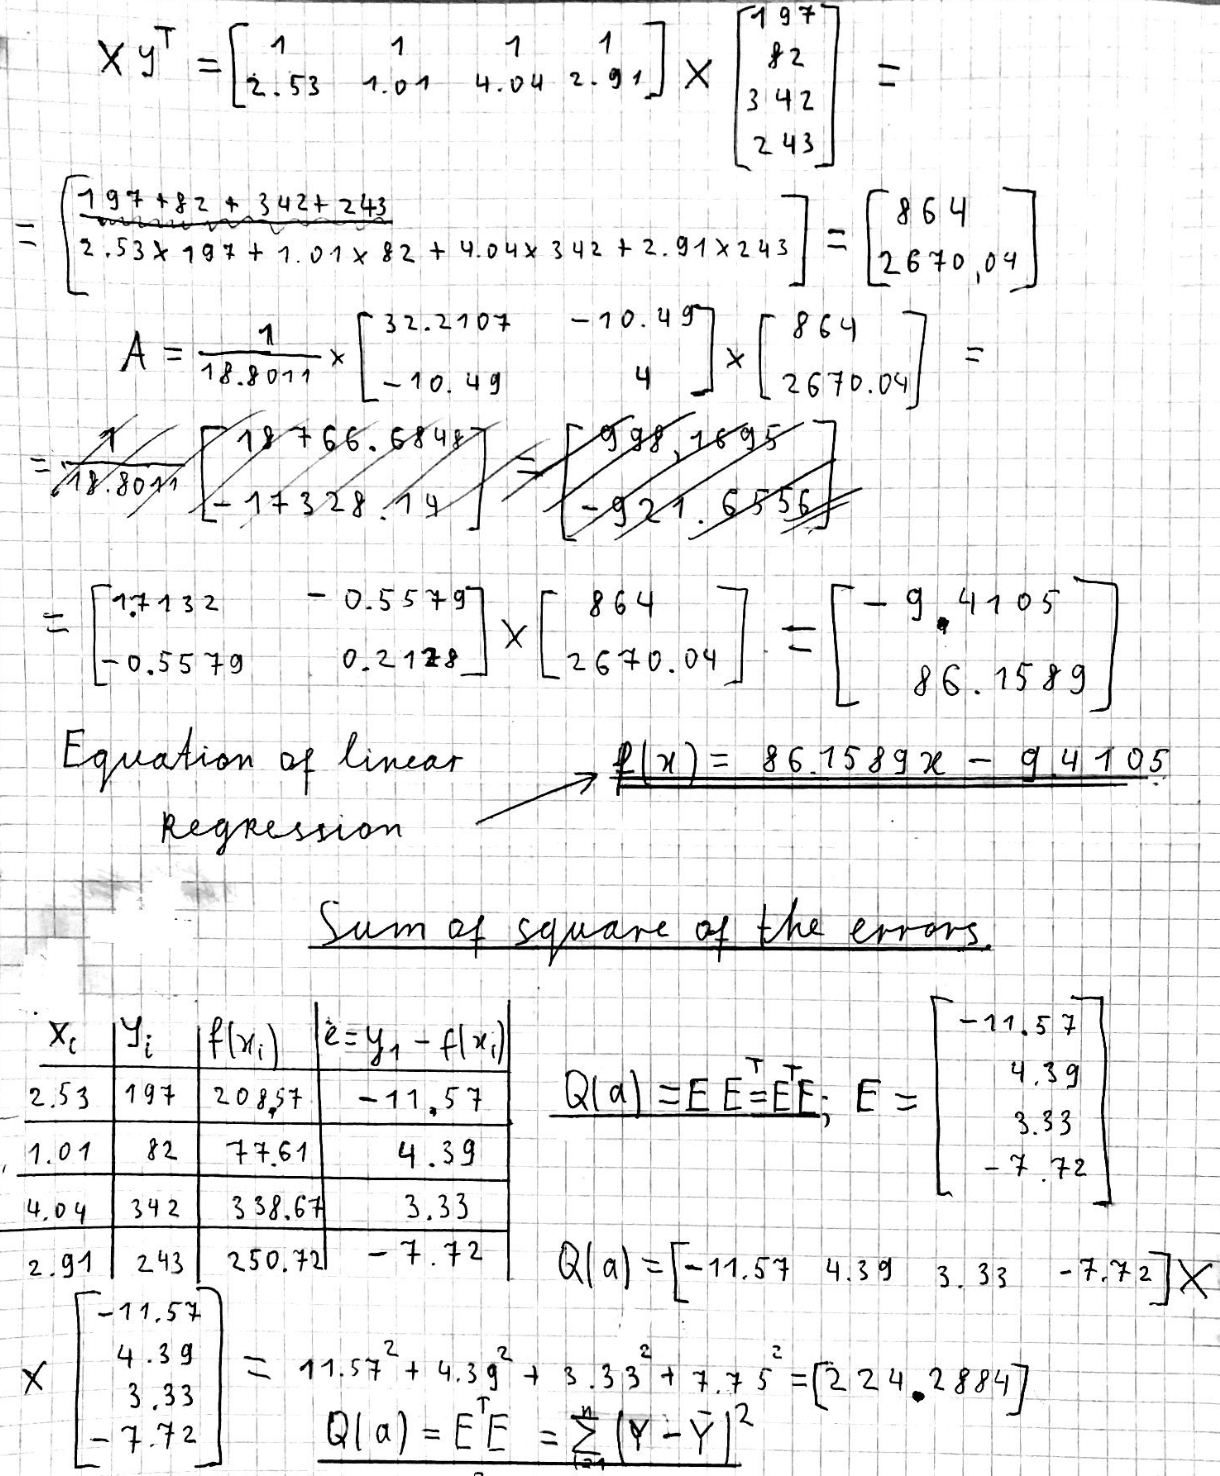 X yᵀ = [1 1 1 1; 2.53 1.01 4.04 2.91] × [197; 82; 342; 243] =
= [197+82+342+243; 2.53×197+1.01×82+4.04×342+2.91×243] = [864; 2670,04]
A = 1/18.8011 × [32.2107 -10.49; -10.49 4] × [864; 2670.04] =
= 1/18.8011 [18766.6848; -17328.14] = [998,1695; -921.6556]
= [1.7132 -0.5579; -0.5579 0.2128] × [864; 2670.04] = [-9.4105; 86.1589]
Equation of linear f(x) = 86.1589x - 9.4105
Regression
Sum of square of the errors
xᵢ yᵢ f(xᵢ) e=y₁-f(xᵢ)
2.53 197 208,57 -11,57
1.01 82 77.61 4.39
4.04 342 338.67 3.33
2.91 243 250.72 -7.72
Q(a) = E Eᵀ=EᵀE; E = [-11.57; 4.39; 3.33; -7.72]
Q(a) = [-11.57 4.39 3.33 -7.72] ×
× [-11.57; 4.39; 3.33; -7.72] = 11.57² + 4.39² + 3.33² + 7.75² = [224.2884]
Q(a) = EᵀE = Σⁿᵢ₌₁ (Y - Ȳ)²